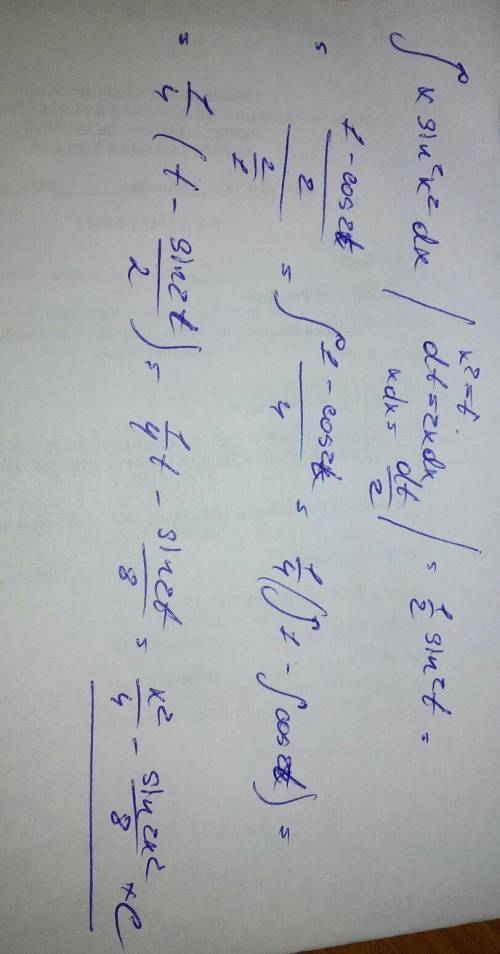 ∫ x sin²x² dx | x² = t. dt = 2xdx xdx = dt/2 | = 1/2 sin²t =
= ((1 - cos2t)/2)/(2/1) = ∫ (1 - cos2t)/4 = 1/4 (∫1 - ∫cos2t) =
= 1/4 (t - sin2t/2) = 1/4 t - sin2t/8 = x²/4 - sin2x²/8 + C